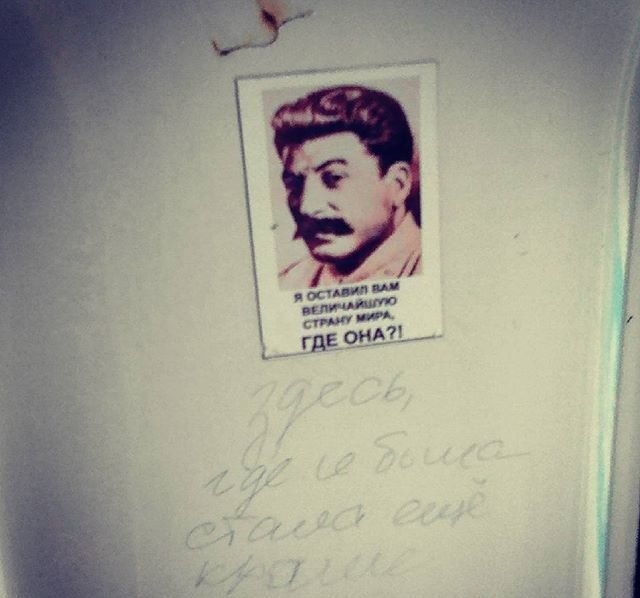 Я ОСТАВИЛ ВАМ
ВЕЛИЧАЙШУЮ
СТРАНУ МИРА,
ГДЕ ОНА?!
здесь,
где и была
стала ещё
краше